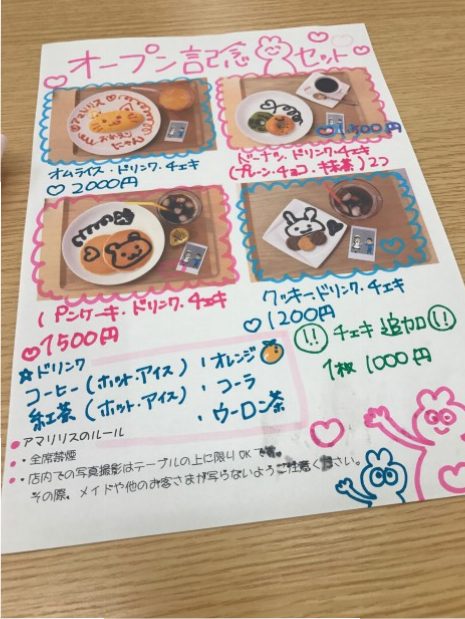 オープン記念 セット
アマリリス
おかえり
にゃん
オムライス・ドリンク・チェキ
2000円
1,500円
ドーナツ・ドリンク・チェキ
(プレーン・チョコ・抹茶)2つ
パンケーキ・ドリンク・チェキ
1500円
クッキー・ドリンク・チェキ
1200円
!! チェキ追加 !!
1枚 1000円
☆ドリンク
コーヒー(ホット・アイス)
紅茶(ホット・アイス)
・オレンジ
・コーラ
・ウーロン茶
アマリリスのルール
・全席禁煙
・店内での写真撮影はテーブルの上に限りOKです。
その際、メイドや他のお客さまが写らないようご注意ください。